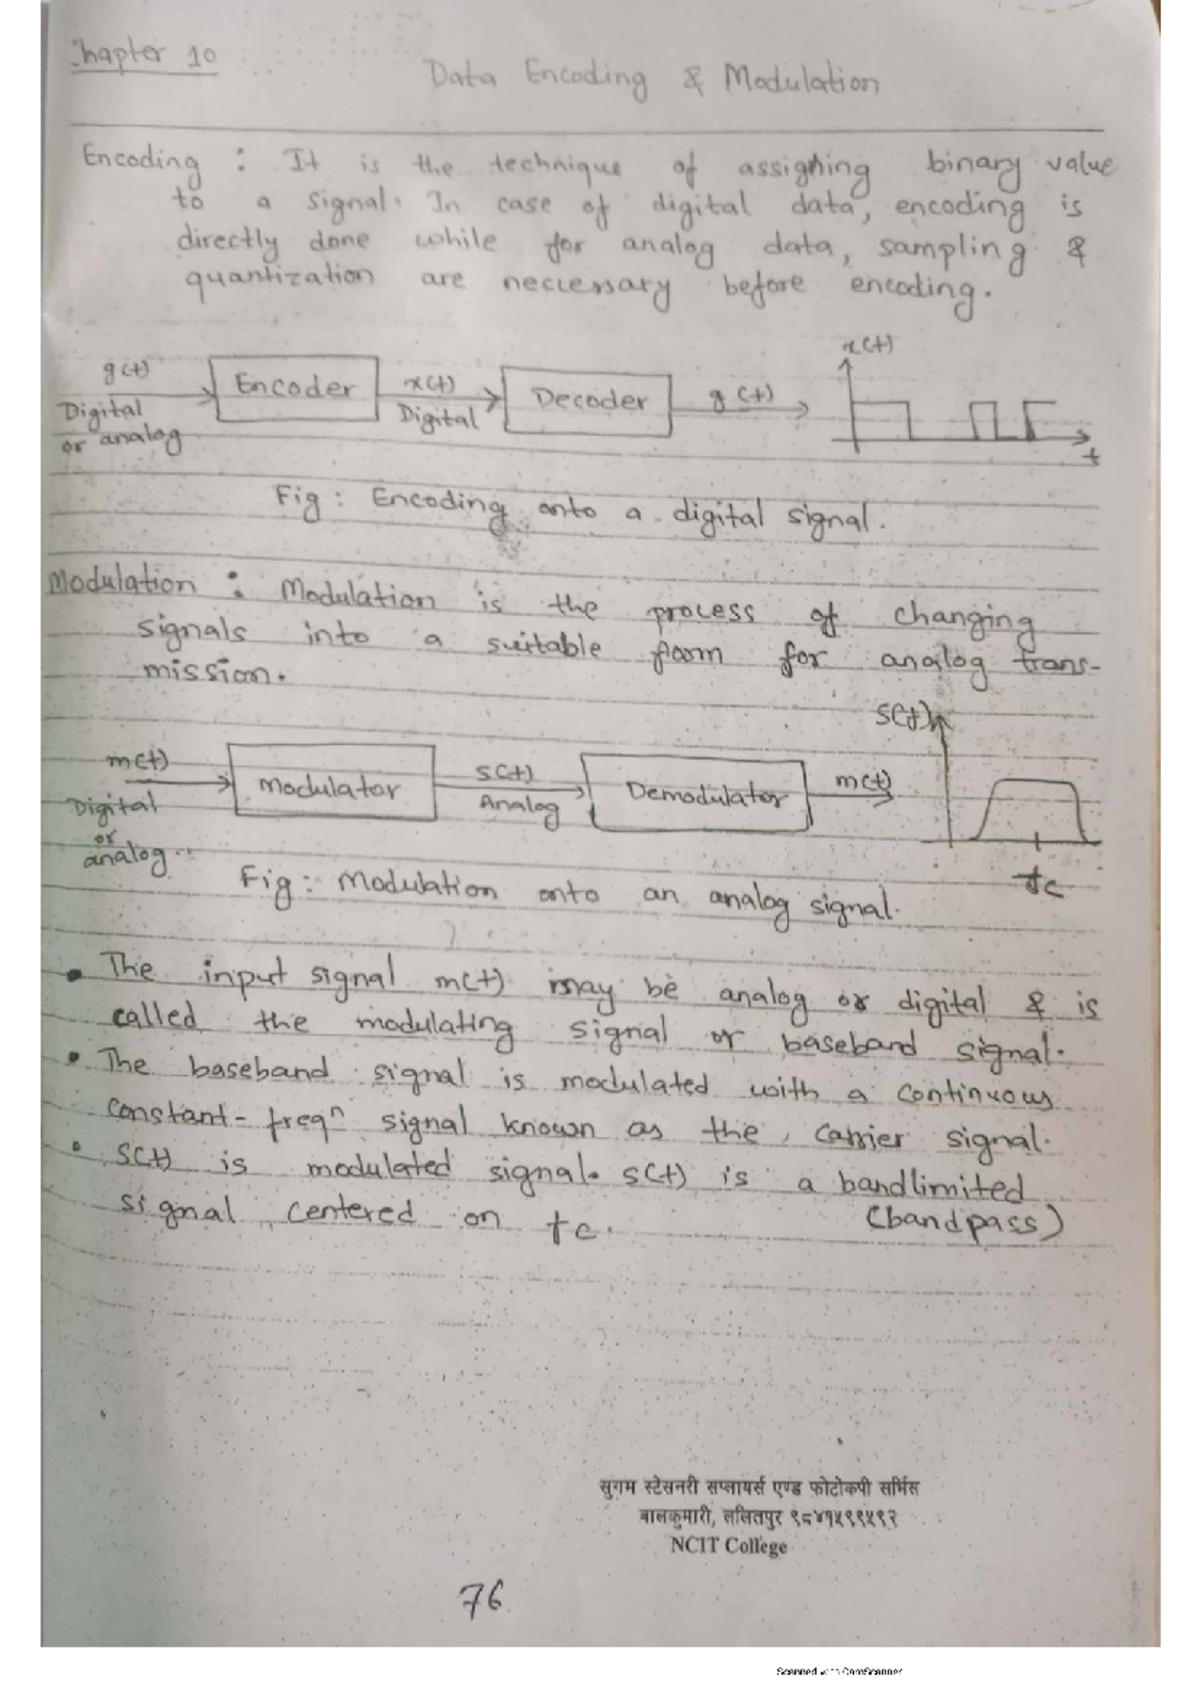 Chapter 10
Data Encoding & Modulation
Encoding : It is the technique of assigning binary value
to a signal. In case of digital data, encoding is
directly done while for analog data, sampling &
quantization are neccessary before encoding.
g(t) Encoder x(t) Decoder g(t) x(t)
Digital Digital
or analog t
Fig : Encoding onto a digital signal.
Modulation : Modulation is the process of changing
signals into a suitable form for analog trans-
mission.
S(t)
m(t) Modulator s(t) Demodulator m(t)
Digital Analog
or
analog fc
Fig : Modulation onto an analog signal.
• The input signal m(t) may be analog or digital & is
called the modulating signal or baseband signal.
• The baseband signal is modulated with a continuous
constant-freqⁿ signal known as the carrier signal.
• s(t) is modulated signal. s(t) is a bandlimited
signal, centered on fc. (bandpass)
सुगम स्टेसनरी सप्लायर्स एण्ड फोटोकपी सर्भिस
बालकुमारी, ललितपुर ९८४१५९९५९२
NCIT College
76
Scanned with CamScanner